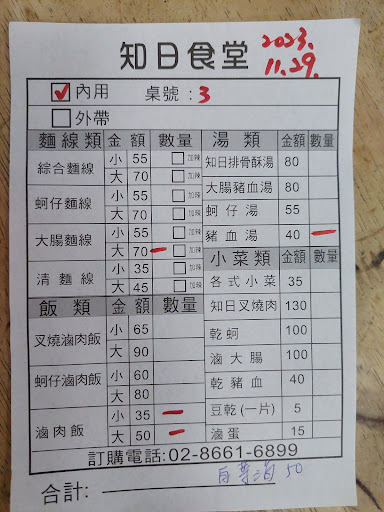 知日食堂 2023.
11.29.
☑ 內用 桌號：3
☐ 外帶
麵線類 金額 數量 湯類 金額 數量
綜合麵線 小 55 ☐加辣 知日排骨酥湯 80
大 70 ☐加辣
蚵仔麵線 小 55 ☐加辣 大腸豬血湯 80
大 70 ☐加辣 蚵仔湯 55
大腸麵線 小 55 ☐加辣 豬血湯 40 一
大 70 一 ☐加辣 小菜類 金額 數量
清麵線 小 35 ☐加辣 各式小菜 35
大 45 ☐加辣
飯類 金額 數量 知日叉燒肉 130
叉燒滷肉飯 小 65 乾蚵 100
大 90 滷大腸 100
蚵仔滷肉飯 小 60 乾豬血 40
大 80
滷肉飯 小 35 一 豆乾(一片) 5
大 50 一 滷蛋 15
訂購電話:02-8661-6899
合計: 50